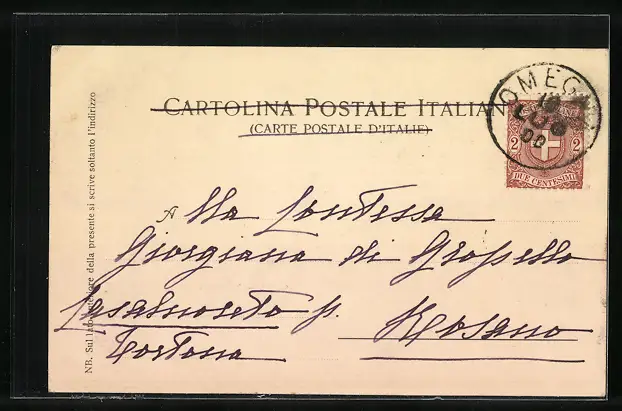 CARTOLINA POSTALE ITALIANA
(CARTE POSTALE D'ITALIE)
OMEGNA
18
LUG
00
2 2
DUE CENTESIMI
A Alla Contessa
Giorgiana di Gropello
Casalnoceto p. Rosano
Tortona
NB. Sul lato anteriore della presente si scrive soltanto l'indirizzo